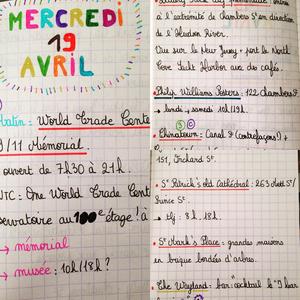 MERCREDI
19
AVRIL
Matin: World Trade Cente
9/11 Mémorial.
ouvert de 7h30 à 21h.
WTC: One World Trade Cente
servatoire au 100e étage! à
→ mémorial
→ musée: 10h/18h?
à l'extrémité de Chambers St en direction
de l'Hudson River.
Vue sur le New Jersey + port le North
Cove Yacht Harbor avec des cafés.
• Philip Williams Posters: 122 chambers St
→ lundi, samedi 10h/19h.
• Chinatown: Canal St (contrefaçons) +
151, Orchard St.
• St Patrick's old Cathédral: 263 Mott St/
Prince St.
→ tlj: 8h, 18h.
• St Mark's Place: grandes maisons
en brique bordées d'arbres.
• The Wayland: bar "cocktail le